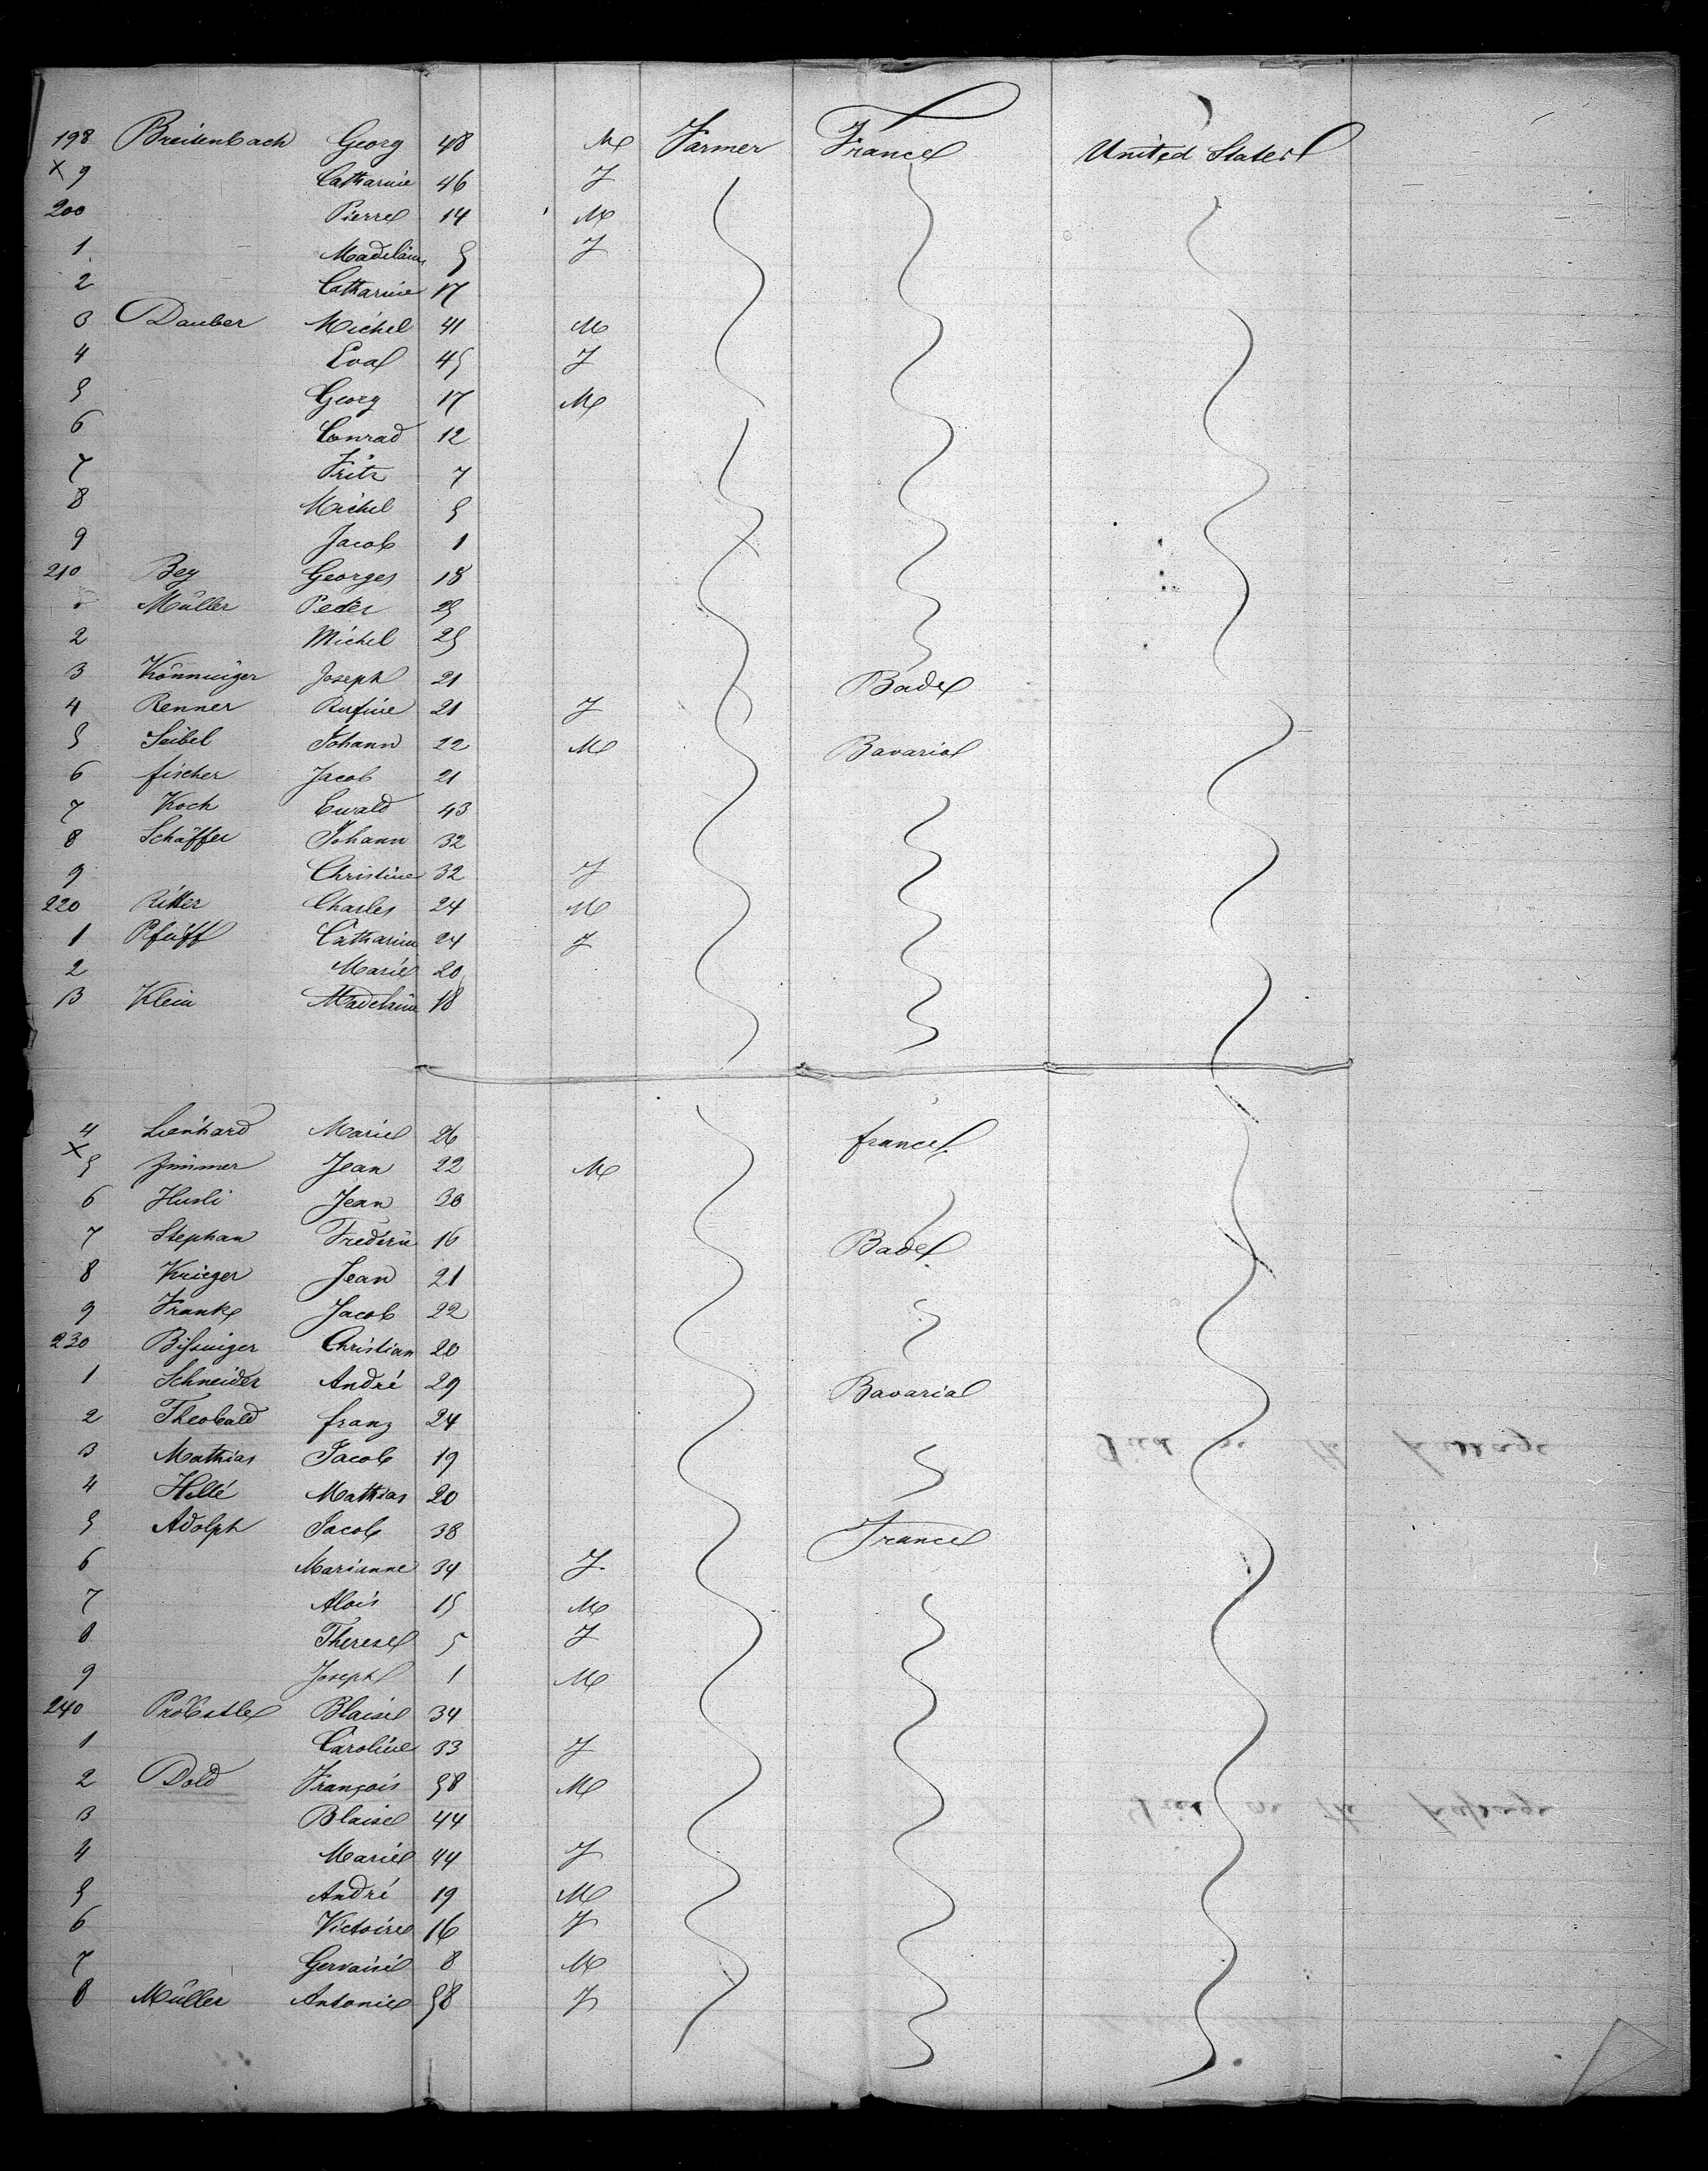 198 Breitenbach Georg 48 M Farmer France United States
x 9 Catharine 46 F
200 Pierre 14 M
1 Madelaine 5 F
2 Catharine 17
3 Dauber Michel 41 M
4 Eva 45 F
5 Georg 17 M
6 Conrad 12
7 Fritz 7
8 Michel 5
9 Jacob 1
210 Bey Georges 18
Müller Peter 25
2 Michel 25
3 Könninger Joseph 21 Bade
4 Renner Rufine 21 F
5 Seibel Johann 22 M Bavaria
6 fischer Jacob 21
7 Koch Ewald 43
8 Schäffer Johann 32
9 Christine 32 F
220 Ritter Charles 24 M
1 Catharine 24 F
2 Marie 20
3 Klein Madelaine 18
4 Lienhard Marie 26 france
x 5 Zimmer Jean 22 M
6 Husli Jean 30
7 Stephan Frederic 16 Bade
8 Krieger Jean 21
9 Frank Jacob 22
230 Bissinger Christian 20
1 Schneider André 29 Bavaria
2 Theobald franz 24
3 Mathias Jacob 19
4 Hellé Mathias 20
5 Adolph Jacob 38 France
6 Marianne 34 F
7 Alois 15 M
8 Therese 5 F
9 Joseph 1 M
240 Probstle Blaise 34
1 Caroline 33 F
2 Dold François 58 M
3 Blaise 44
4 Marie 44 F
5 André 19 M
6 Victoire 16 F
7 Gervaise 8 M
8 Müller Antonie 58 F